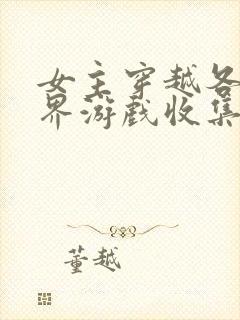 女主穿越各
界游戏收集
董越